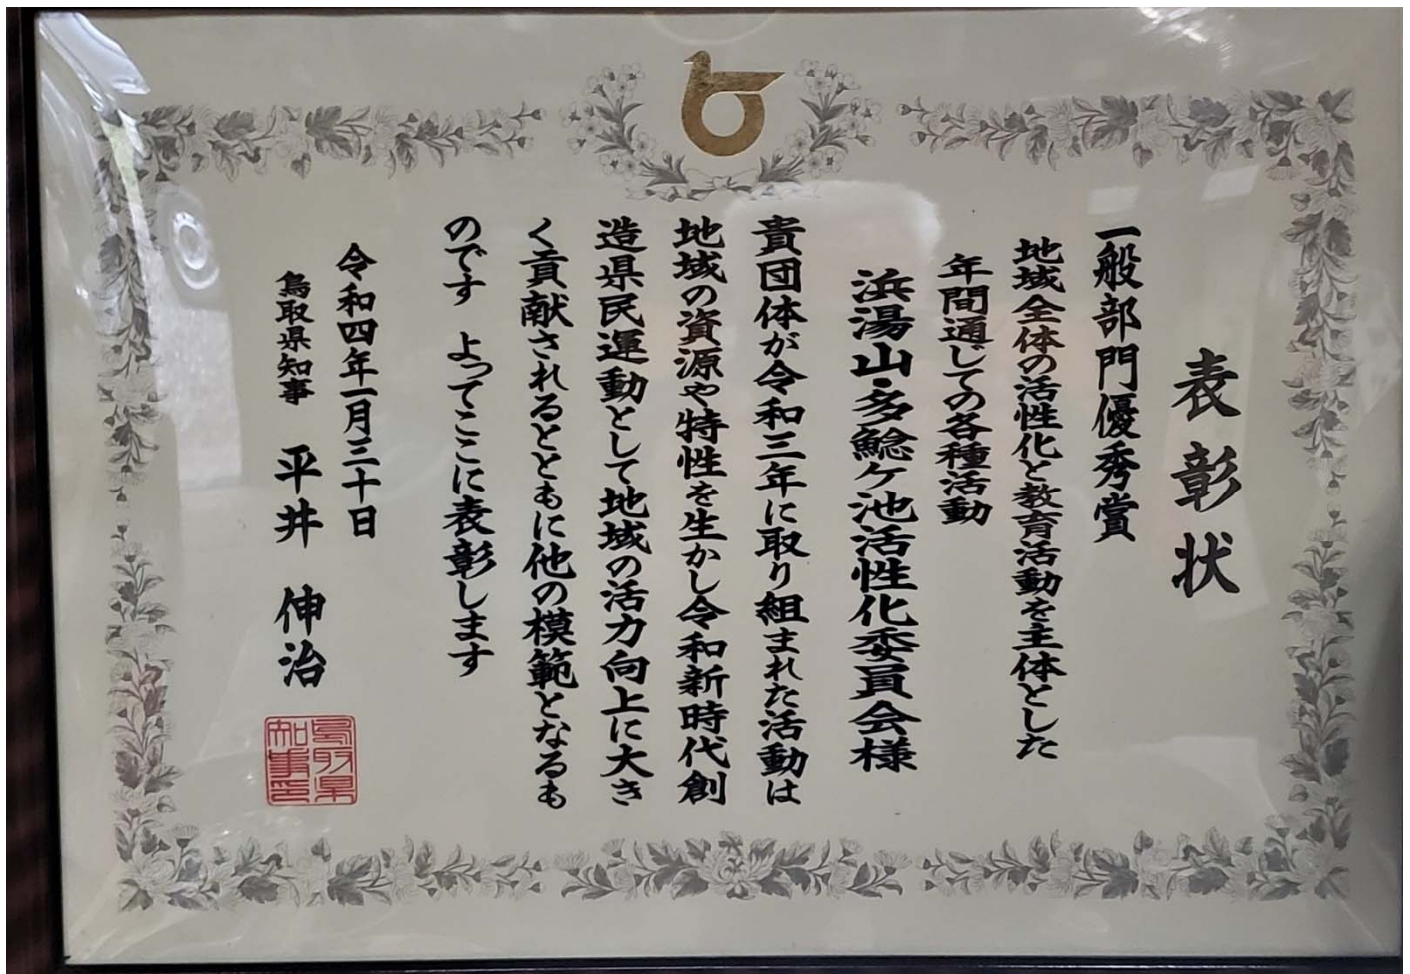 表彰状
一般部門優秀賞
地域全体の活性化と教育活動を主体とした
年間通じての各種活動
浜湯山・多鯰ケ池活性化委員会様
貴団体が令和三年に取り組まれた活動は
地域の資源や特性を生かし令和新時代創
造県民運動として地域の活力向上に大き
く貢献されるとともに他の模範となるも
のです よってここに表彰します
令和四年一月三十日
鳥取県知事 平井 伸治
鳥取県
知事印